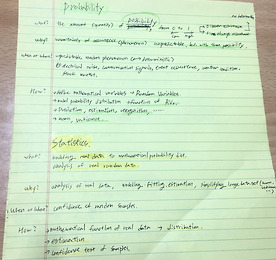 Probability
what? the amount (quantity) of probability from 0 to 1
low high
why? uncertainty of occurrence (phenomenon) unpredictable, but with some possibility.
when or where? unpredictable, random phenomenon (
Electrical noise, communication signals, event occurrence, weather condition.
Stock market.
How? Define mathematical variables → Random Variables
model probability distribution → function of
prediction, estimation, recognition, ....
→ mean, variance..
Statistics
what? modeling real data to mathematical probability
analysis of real random data.
why? analysis of real data, modeling, fitting, estimation, simplifying large data set
when or where? confidence of random samples.
How? → mathematical function of real data → distribution.
→ estimation
→ confidence test of samples